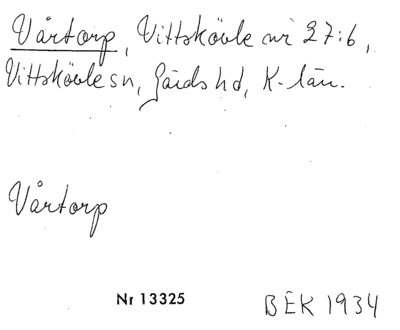 Vårtorp, Vittskövle nr 27:6,
Vittskövle sn, Gärds hd, K-län.
Vårtorp
Nr 13325
BEK 1934